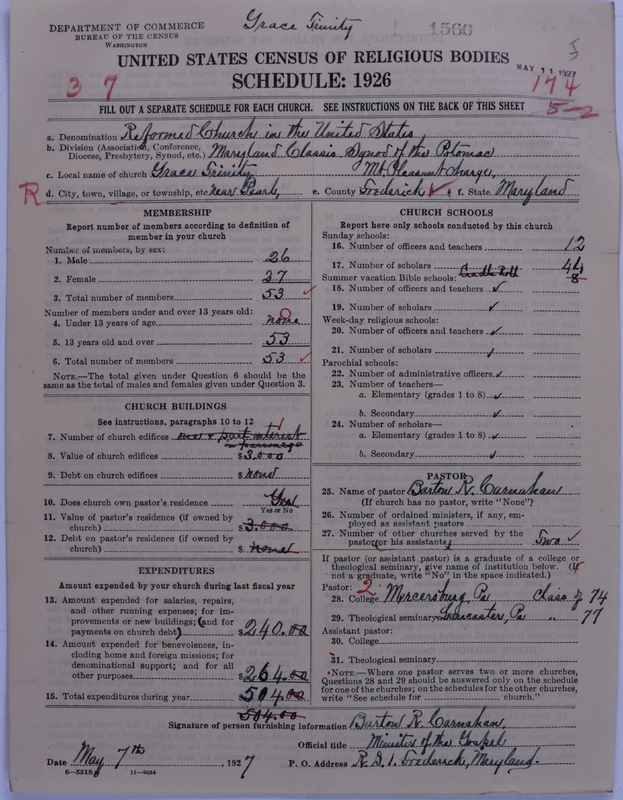 Grace Trinity
1560
DEPARTMENT OF COMMERCE
BUREAU OF THE CENSUS
WASHINGTON
UNITED STATES CENSUS OF RELIGIOUS BODIES
MAY 11 1927
SCHEDULE: 1926
3 7
174
FILL OUT A SEPARATE SCHEDULE FOR EACH CHURCH. SEE INSTRUCTIONS ON THE BACK OF THIS SHEET
5-2
a. Denomination Reformed Church in the United States,
b. Division (Association, Conference, Diocese, Presbytery, Synod, etc.) Maryland Classis Synod of the Potomac
c. Local name of church Grace Trinity Mt. Pleasant Charge,
R d. City, town, village, or township, etc. near Pearl, e. County Frederick f. State Maryland
MEMBERSHIP
Report number of members according to definition of
member in your church
Number of members, by sex:
1. Male 26
2. Female 27
3. Total number of members 53
Number of members under and over 13 years old:
4. Under 13 years of age none 0
5. 13 years old and over 53
6. Total number of members 53
NOTE.—The total given under Question 6 should be the
same as the total of males and females given under Question 3.
CHURCH BUILDINGS
See instructions, paragraphs 10 to 12
7. Number of church edifices one & part interest 1
in parsonage
8. Value of church edifices $3.000
9. Debt on church edifices $none
10. Does church own pastor's residence Yes
Yes or No
11. Value of pastor's residence (if owned by
church) $3.000
12. Debt on pastor's residence (if owned by
church) $none
EXPENDITURES
Amount expended by your church during last fiscal year
13. Amount expended for salaries, repairs,
and other running expenses; for im-
provements or new buildings; (and for
payments on church debt) $240.00
14. Amount expended for benevolences, in-
cluding home and foreign missions; for
denominational support; and for all
other purposes $264.00
15. Total expenditures during year $504.00
504.00
CHURCH SCHOOLS
Report here only schools conducted by this church
Sunday schools:
16. Number of officers and teachers 12
17. Number of scholars 44
Cradle Roll 8
Summer vacation Bible schools:
18. Number of officers and teachers ✓
19. Number of scholars ✓
Week-day religious schools:
20. Number of officers and teachers ✓
21. Number of scholars ✓
Parochial schools:
22. Number of administrative officers ✓
23. Number of teachers—
a. Elementary (grades 1 to 8) ✓
b. Secondary ✓
24. Number of scholars—
a. Elementary (grades 1 to 8) ✓
b. Secondary ✓
PASTOR
25. Name of pastor Barton R. Carnahan
(If church has no pastor, write "None")
26. Number of ordained ministers, if any, em-
ployed as assistant pastors
27. Number of other churches served by the
pastor (or his assistants) Two
If pastor (or assistant pastor) is a graduate of a college or
theological seminary, give name of institution below. (If
not a graduate, write "No" in the space indicated.)
Pastor: 2
28. College Mercersburg, Pa Class of 74
29. Theological seminary Lancaster, Pa " " 77
Assistant pastor:
30. College
31. Theological seminary
NOTE.—Where one pastor serves two or more churches,
Questions 28 and 29 should be answered only on the schedule
for one of the churches; on the schedules for the other churches,
write "See schedule for church."
Signature of person furnishing information Barton R. Carnahan,
Official title Minister of the Gospel
Date May 7th 1927 P. O. Address R.D.1 Frederick, Maryland.
8-5518 11-9054